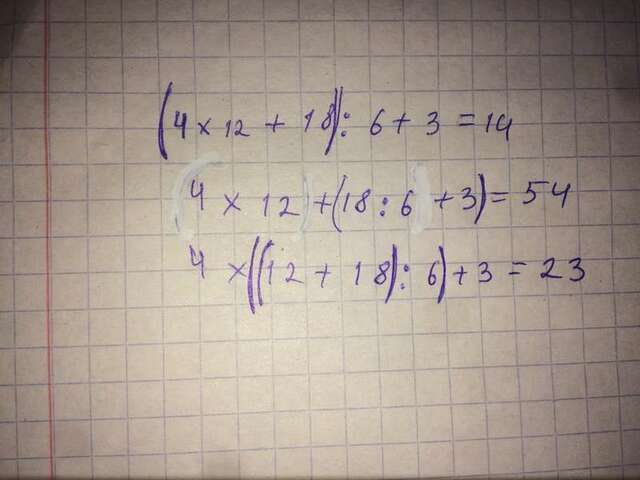 (4 × 12 + 18) : 6 + 3 = 14
4 × 12) + (18 : 6 + 3) = 54
4 × ((12 + 18) : 6) + 3 = 23